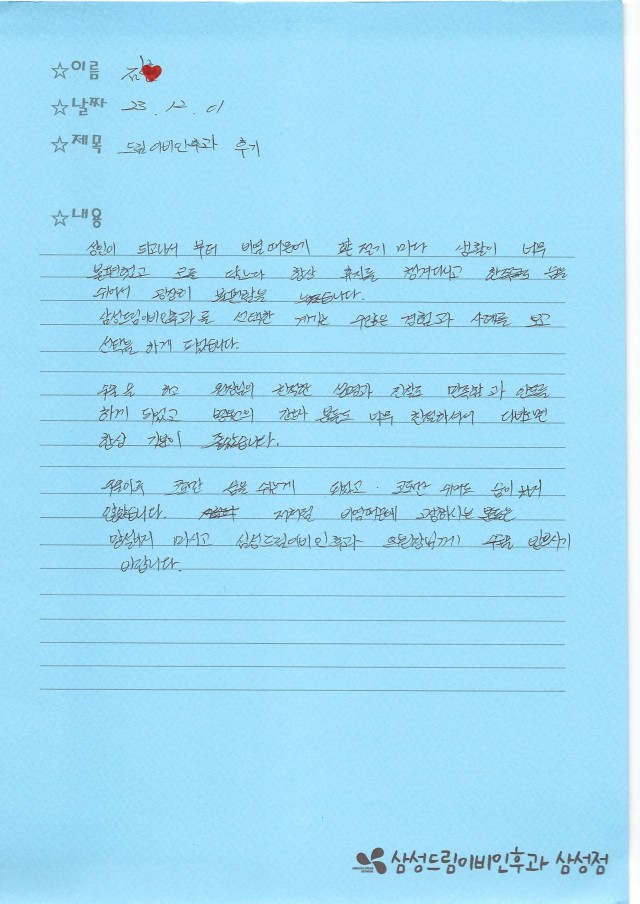 ☆이름 김
☆날짜 23. 12. 01
☆제목 드림이비인후과 후기
☆내용
성인이 되고나서 부터 비염때문에 환절기 마다 생활이 너무
불편했고 코를 항상 휴지를 챙겨다니고 숨을
쉬어서 굉장히 불편함을
삼성드림이비인후과를 선택한 계기는 수많은 경험과 사례를 보고
선택을 하게 되었습니다.
수술을 하고 원장님의 친절한 설명과 진찰로 만족함과 안도를
하게 되었고 병원의 간호사 분들도 너무 친절하셔서
항상 기분이 좋았습니다.
숨을 쉬는게 되었고. 숨이 차지
않았습니다. 저처럼 비염때문에 고생하시는 분들은
망설이지 마시고 삼성드림이비인후과 원장님께 수술을 받으시기
바랍니다.
삼성드림이비인후과 삼성점